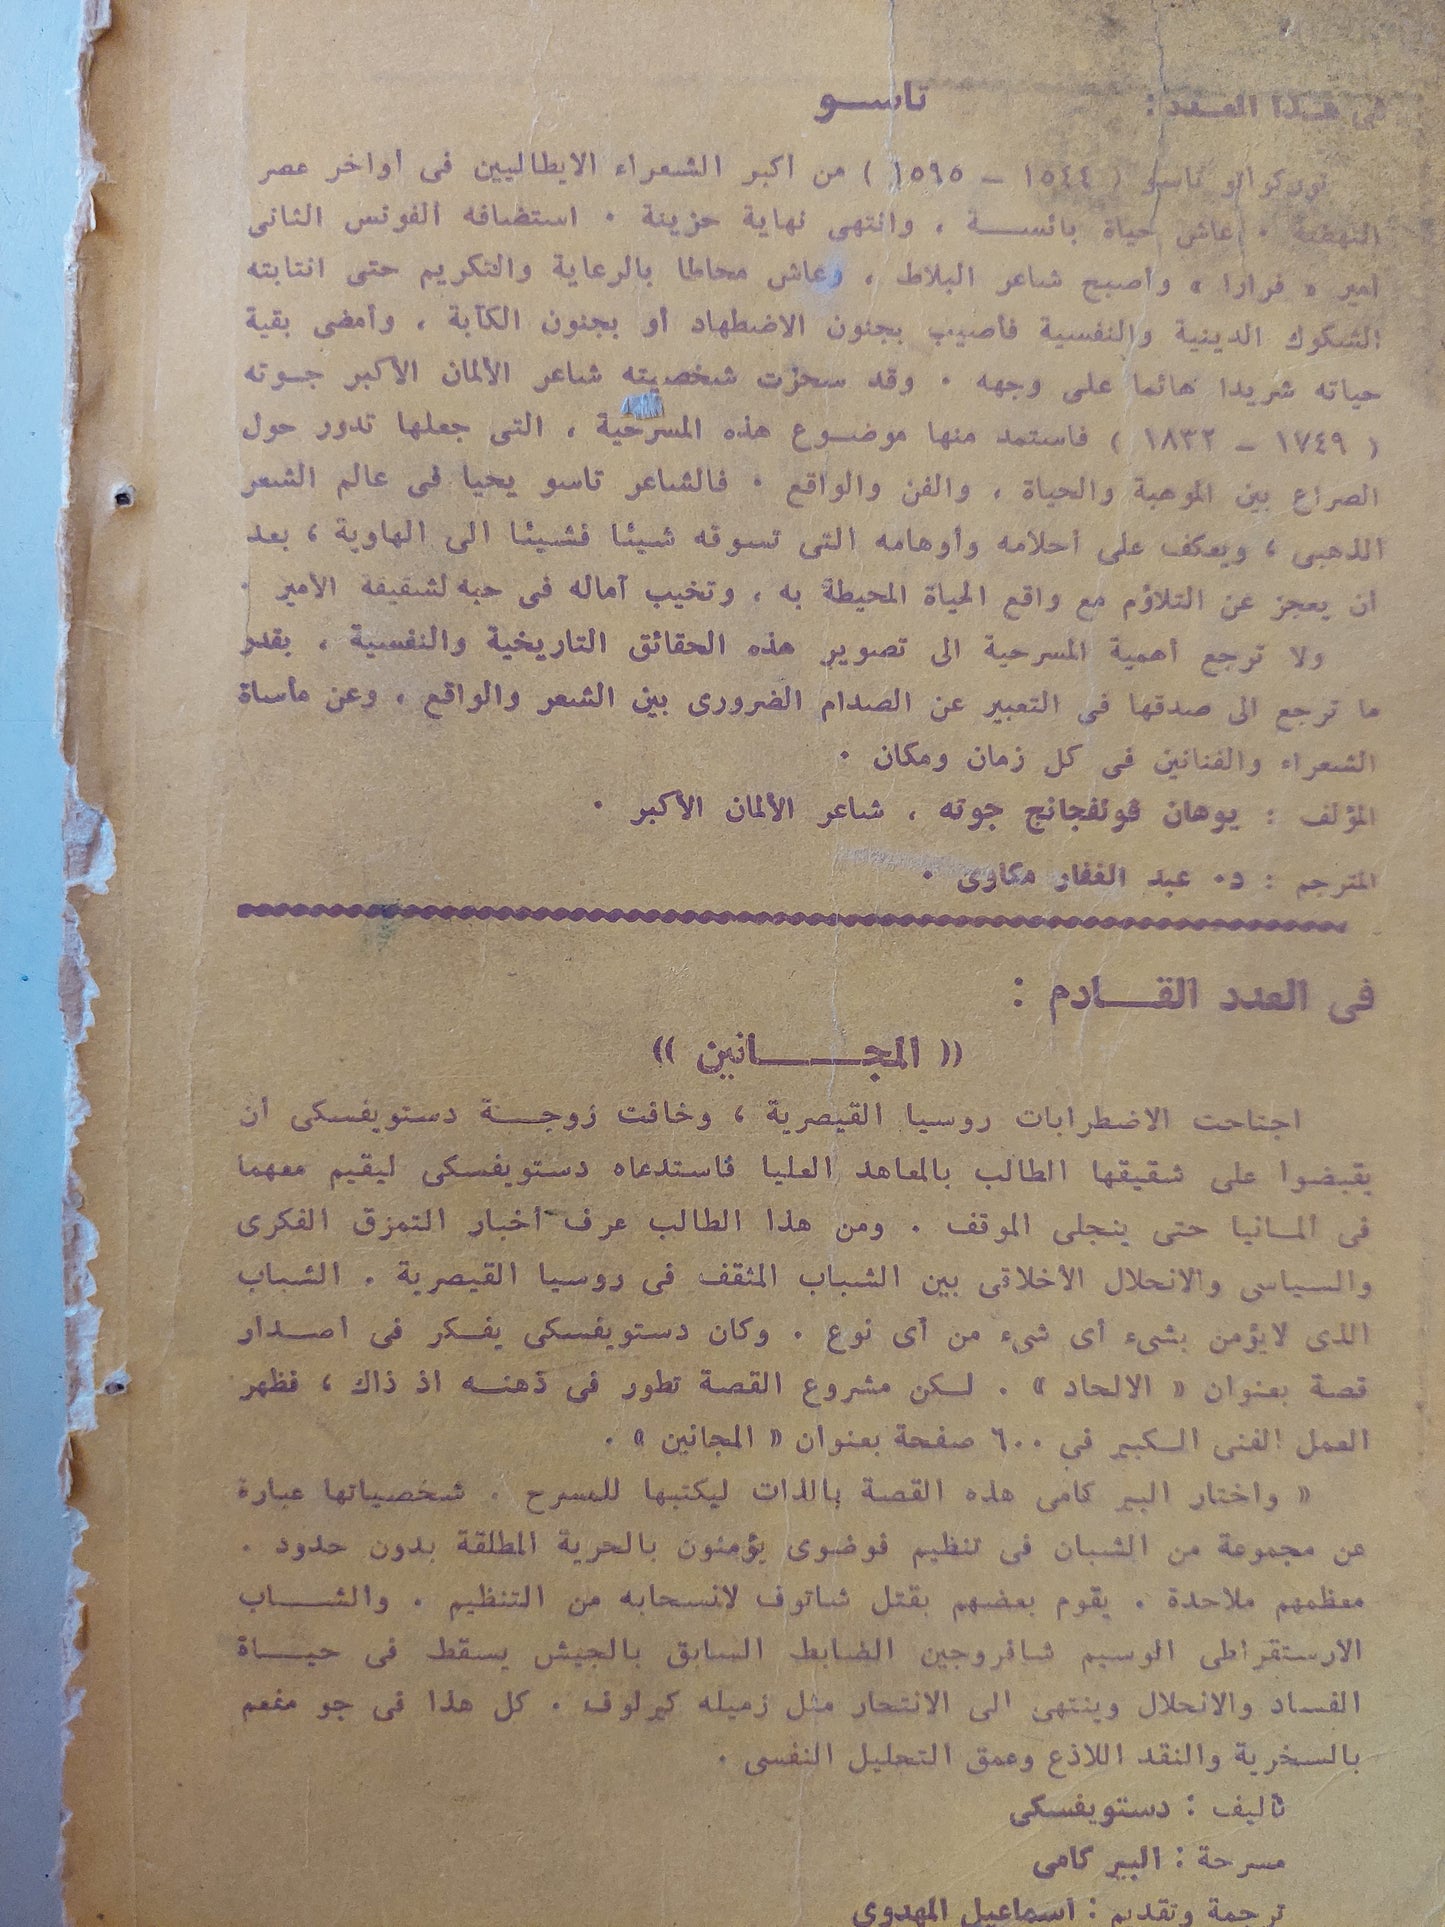 فى هذا العدد :
تاســـو
توركواتو تاسو ( ١٥٤٤ – ١٥٩٥ ) من أكبر الشعراء الايطاليين فى أواخر عصر
النهضة . عاش حياة بائســـة ، وانتهى نهاية حزينة . استضافه ألفونس الثانى
أمير « فرارا » وأصبح شاعر البلاط ، وعاش محاطا بالرعاية والتكريم حتى انتابته
الشكوك الدينية والنفسية فأصيب بجنون الاضطهاد أو بجنون الكآبة ، وأمضى بقية
حياته شريدا هائما على وجهه . وقد سحرت شخصيته شاعر الألمان الأكبر جـوته
( ١٧٤٩ – ١٨٣٢ ) فاستمد منها موضـوع هذه المسرحية ، التى جعلها تدور حول
الصراع بين الموهبة والحياة ، والفن والواقع . فالشاعر تاسو يحيا فى عالم الشعر
الذهبى ، ويعكف على أحلامه وأوهامه التى تسوقه شيئا فشيئا الى الهاوية ، بعد
أن يعجز عن التلاؤم مع واقع الحياة المحيطة به ، وتخيب آماله فى حبه لشقيقة الأمير .
ولا ترجع أهمية المسرحية الى تصوير هذه الحقائق التاريخية والنفسية ، بقدر
ما ترجع الى صدقها فى التعبير عن الصدام الضرورى بين الشعر والواقع ، وعن مأساة
الشعراء والفنانين فى كل زمان ومكان .
المؤلف : يوهان فولفجانج جوته ، شاعر الألمان الأكبر .
المترجم : د. عبد الغفار مكاوى .
فى العدد القـــادم :
« المجـــــانين »
اجتاحت الاضطرابات روسيا القيصرية ، وخافت زوجـــة دستويفسكى أن
يقبضوا على شقيقها الطالب بالمعاهد العليا فاستدعاه دستويفسكى ليقيم معهما
فى ألمـانيا حتى ينجلى الموقف . ومن هذا الطالب عرف أخبار التمزق الفكرى
والسياسى والانحلال الأخلاقى بين الشباب المثقف فى روسيا القيصرية . الشباب
الذى لايؤمن بشىء أى شىء من أى نوع . وكان دستويفسكى يفـكر فى اصـدار
قصة بعنوان « الالحاد » . لـكن مشروع القصة تطور فى ذهنـه اذ ذاك ، فظهر
العمل الفنى الـكبير فى ٦٠٠ صفحة بعنوان « المجانين » .
« واختار البير كامى هذه القصة بالذات ليكتبها للمسرح . شخصياتها عبارة
عن مجموعة من الشبان فى تنظيم فوضوى يؤمنون بالحرية المطلقة بدون حدود .
معظمهم ملاحدة . يقوم بعضهم بقتل شاتوف لانسحابه من التنظيم . والشـــاب
الارستقراطى الوسيم شافروجين الضابط السابق بالجيش يسقط فى حيـــاة
الفساد والانحلال وينتهى الى الانتحار مثل زميله كيرلوف . كل هذا فى جو مفعم
بالسخرية والنقد اللاذع وعمق التحليل النفسى .
تأليف : دستويفسكى
مسرحة : البير كامى
ترجمة وتقديم : اسماعيل المهدوى